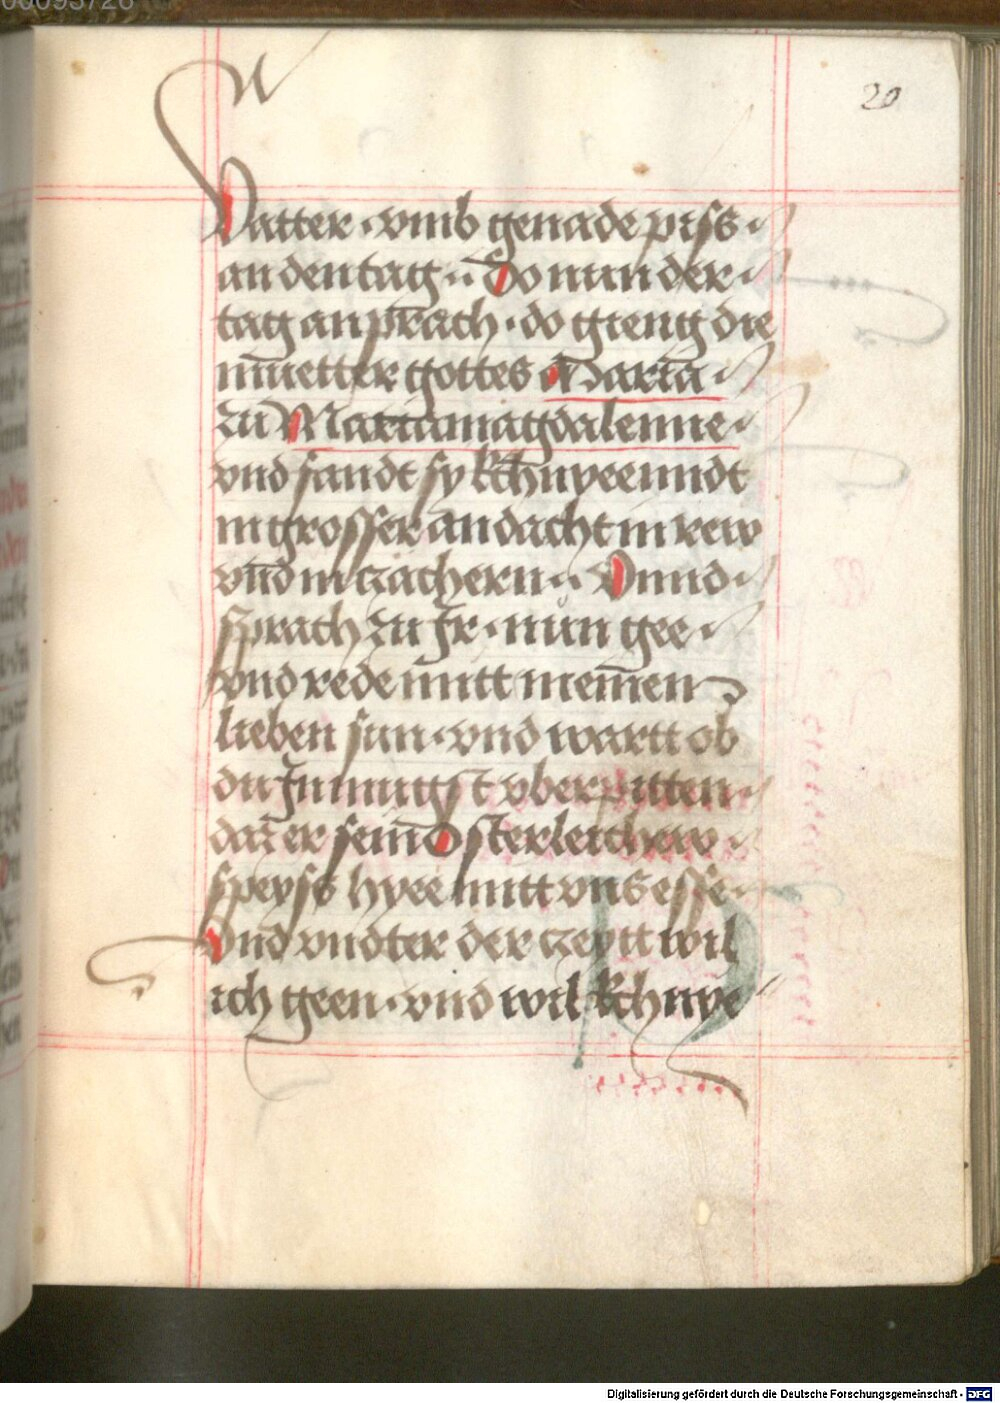 20
Vatter · vmb genade piss ·
an den tag ·· Do nun der ·
tag an prach · do gieng die
mūetter gottes Maria ·
zu Mariamagdalenne ·
vnd fandt sy kchnyeenndt
in grosser andacht in rew
vnd in czachern ·· Vnnd ·
sprach zu Ir · nun gee ·
vnd rede mitt meinen
lieben sun · vnd wartt ob
du In mugst vberpitten ·
daz er sein Osterleichew ·
speyss hyee mitt vns esse ·
Vnd vndter der czeytt wil
ich geen · vnd wil kchnye
Digitalisierung gefördert durch die Deutsche Forschungsgemeinschaft - DFG